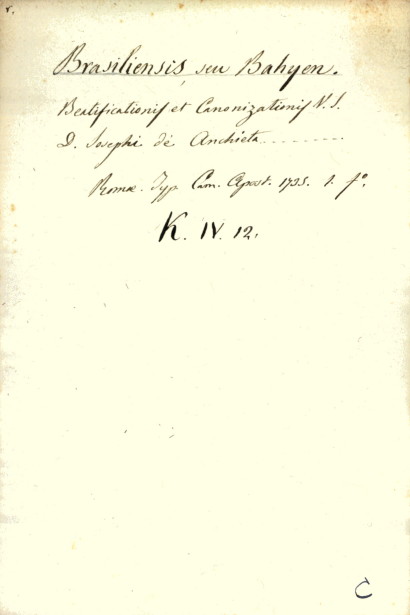 Brasiliensis, seu Bahyen.
Beatificationis et Canonizationis V. S.
D. Josephi de Anchieta.........
Romæ. Typ. Cam. Apost. 1735. 1. fº.
K. IV. 12.
C